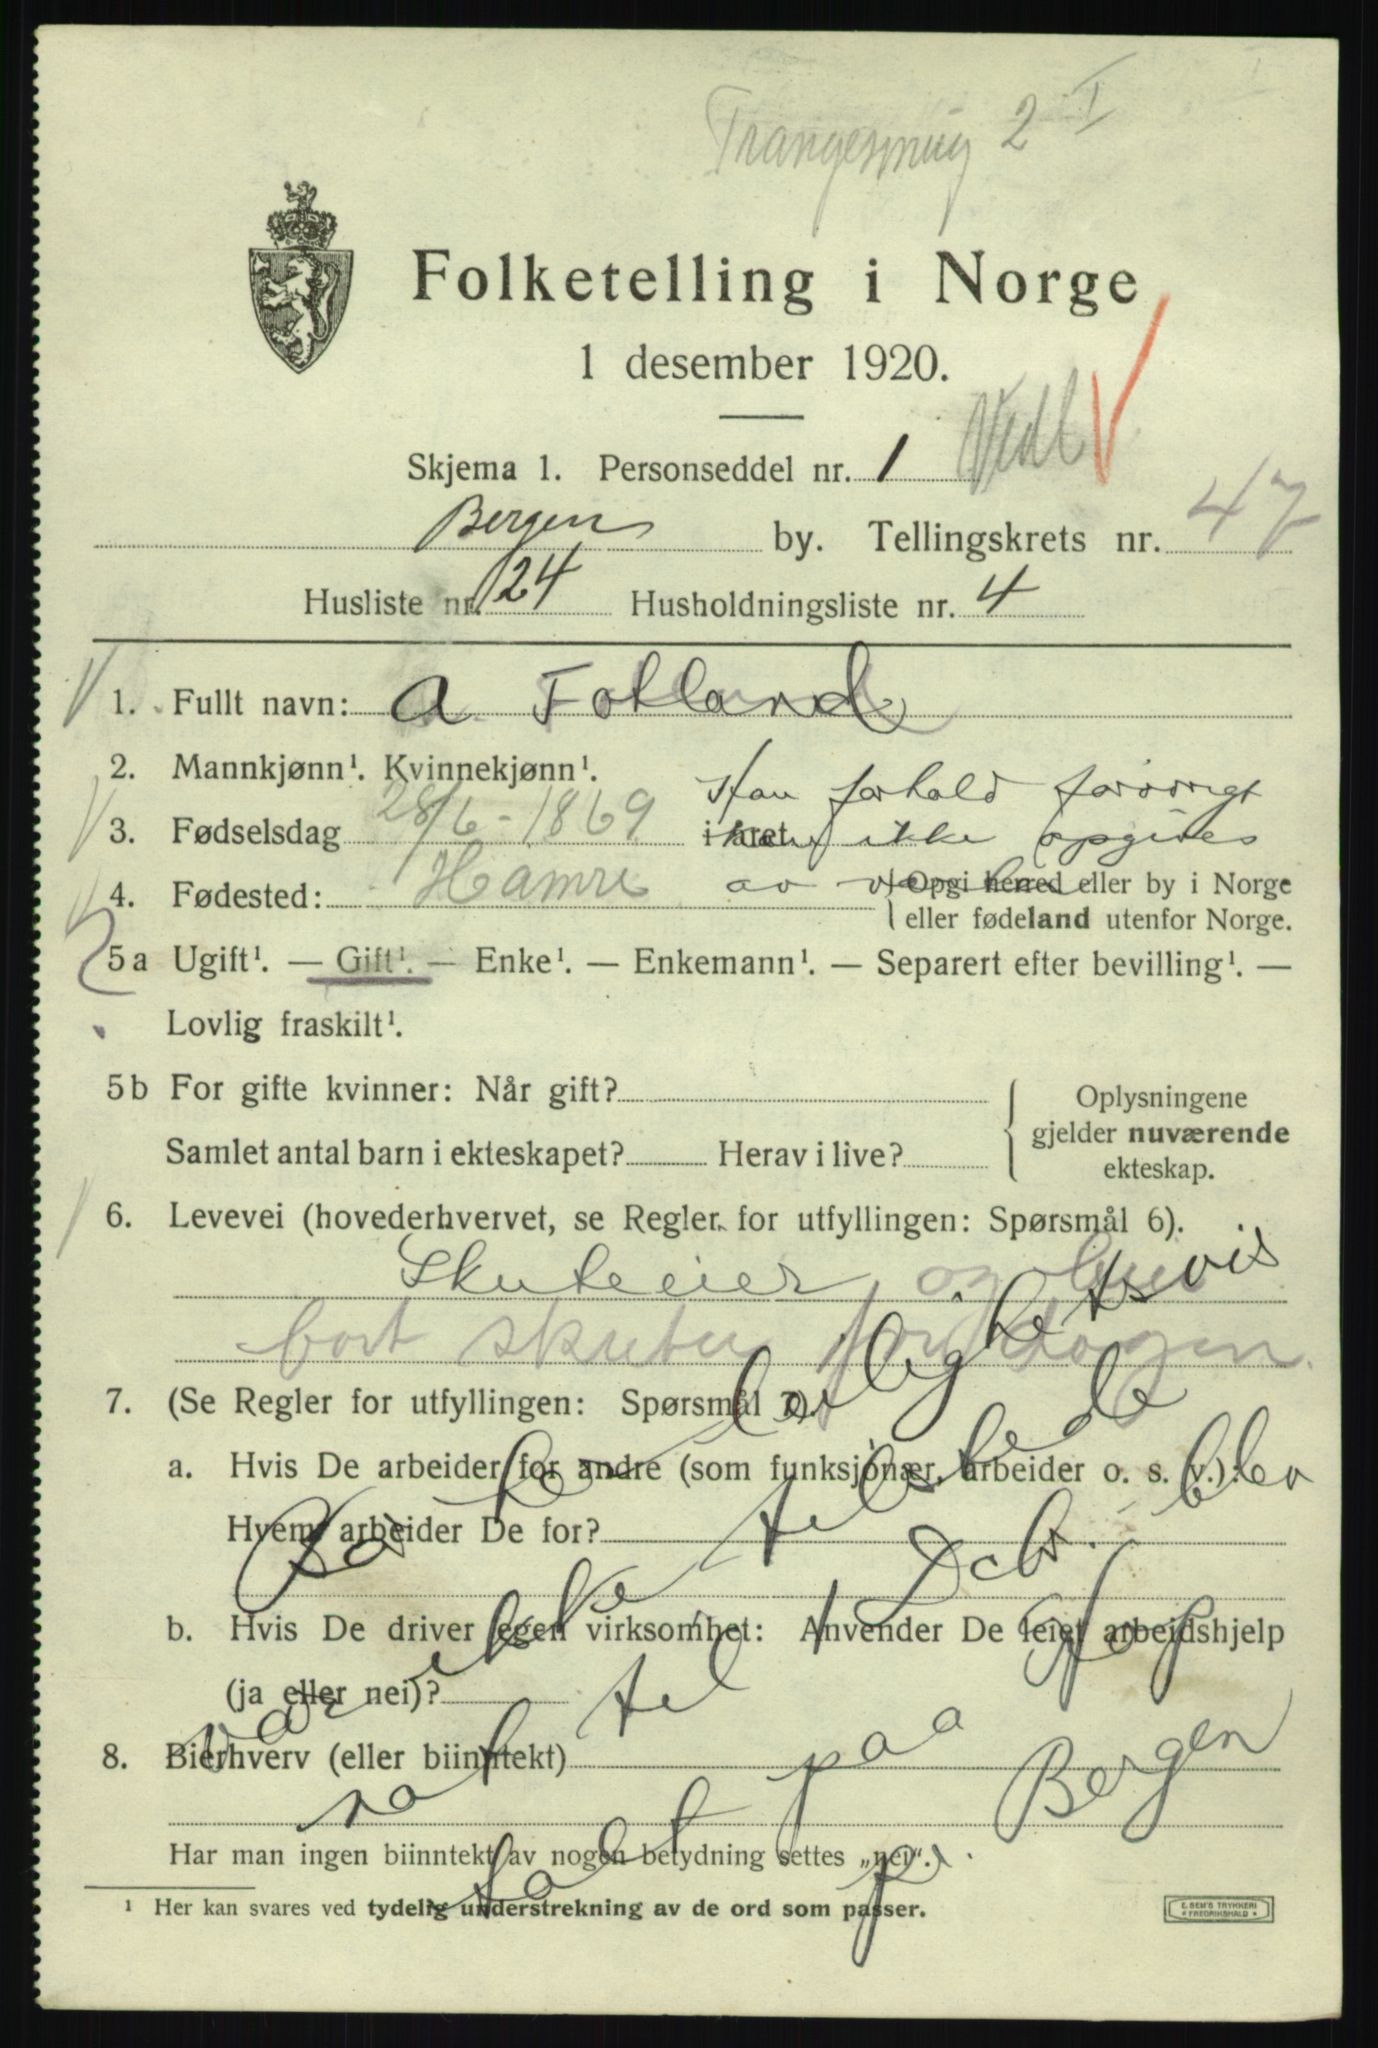 Trangesmug 2 I
Folketelling i Norge
1 desember 1920.
Vedl V
Skjema 1. Personseddel nr. 1
Bergens by. Tellingskrets nr. 47
Husliste nr. 24 Husholdningsliste nr. 4
1. Fullt navn: A Fotland
2. Mannkjønn¹. Kvinnekjønn¹.
Hans forhold forøvrigt
3. Fødselsdag 28/6-1869 i året
ikke opgives
4. Fødested: Hamre av { Opgi herred eller by i Norge
eller fødeland utenfor Norge.
5a Ugift¹. — Gift¹. — Enke¹. — Enkemann¹. — Separert efter bevilling¹. —
Lovlig fraskilt¹.
5b For gifte kvinner: Når gift?
Samlet antal barn i ekteskapet? Herav i live?
Oplysningene
gjelder nuværende
ekteskap.
6. Levevei (hovederhvervet, se Regler for utfyllingen: Spørsmål 6).
Skuteeier og
bort skuter
7. (Se Regler for utfyllingen: Spørsmål 7).
a. Hvis De arbeider for andre (som funksjonær, arbeider o. s. v.):
Hvem arbeider De for?
b. Hvis De driver egen virksomhet: Anvender De leiet arbeidshjelp
(ja eller nei)?
8. Bierhverv (eller biinntekt)
Har man ingen biinntekt av nogen betydning settes „nei“.
¹ Her kan svares ved tydelig understrekning av de ord som passer.
var ikke tilstede
1 Dcbr. blev
nat til
talt paa
Bergen
E. SEM'S TRYKKERI
FREDRIKSHALD